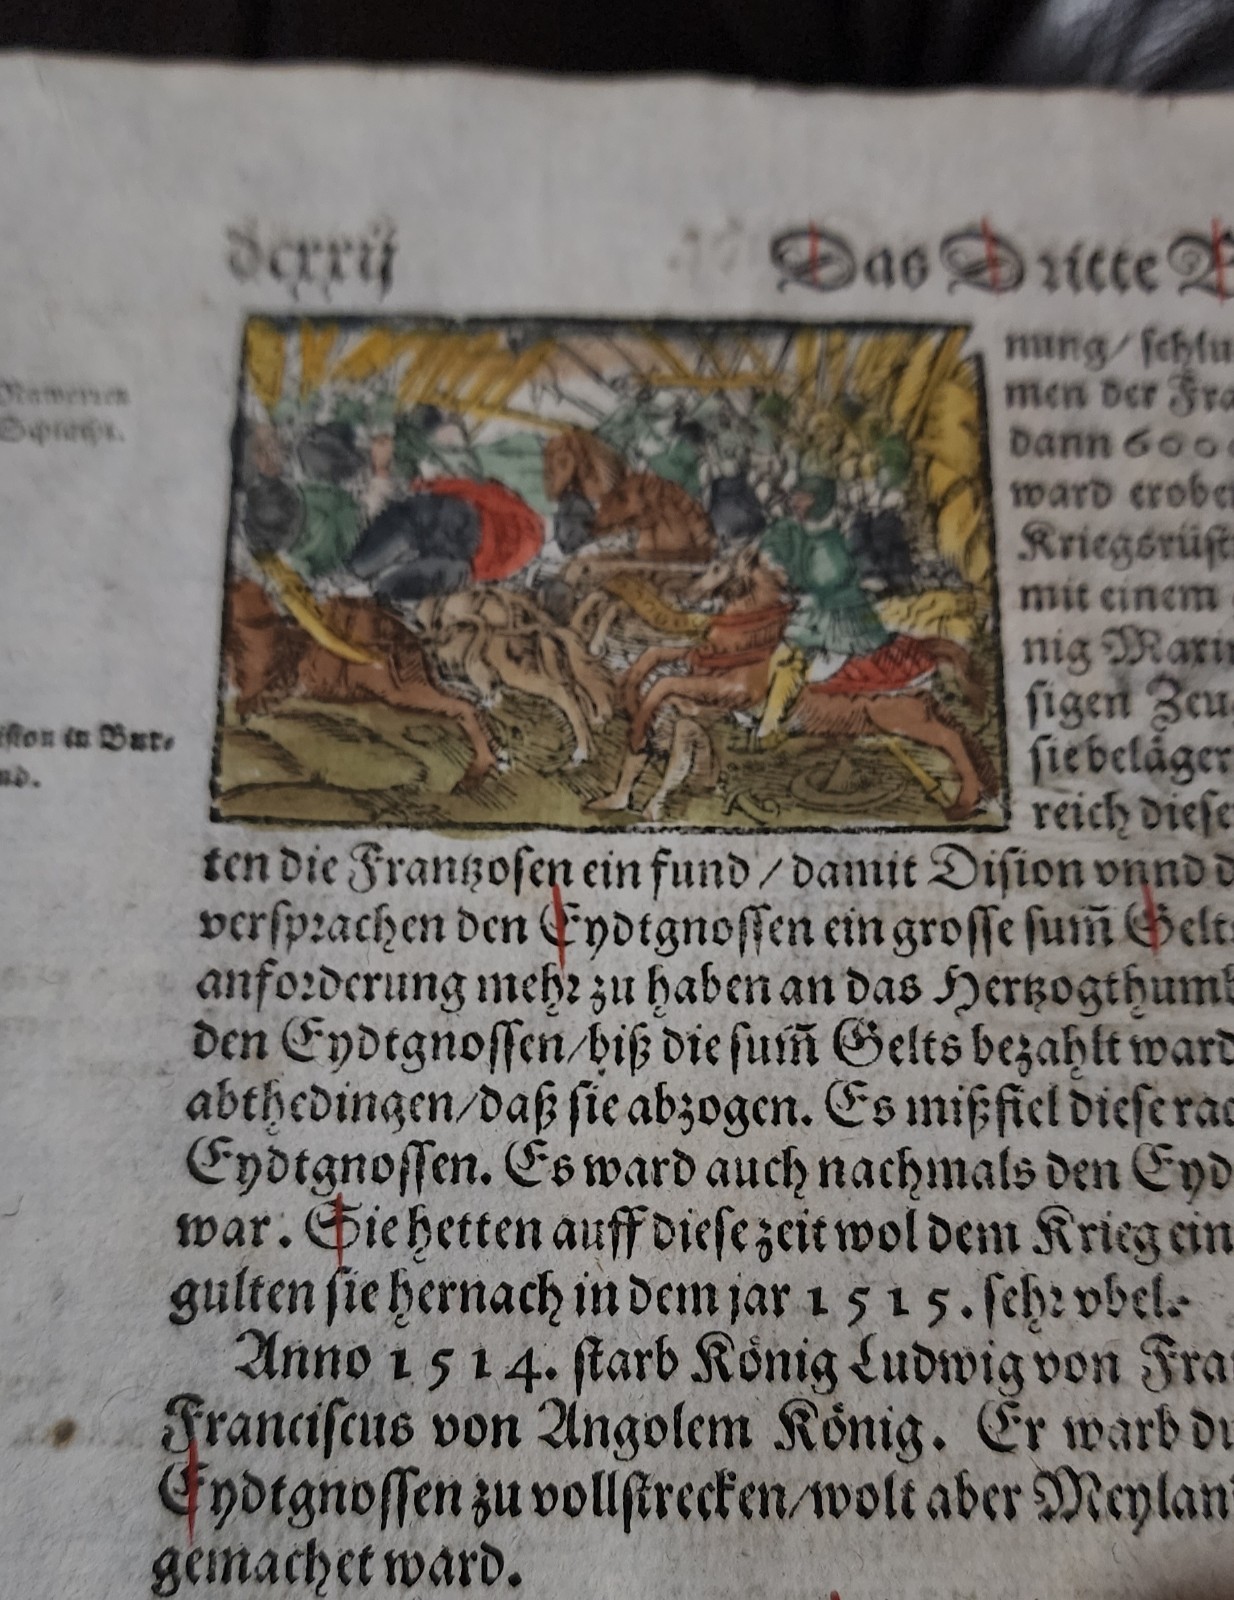 dcxxij
Das Dritte B
Nawerren
Schlacht.
nung/ schlu
men der Fra
dann 6000
ward erobe
Kriegsrüst
mit einem
nig Maxi
sigen Zeu
sie beläger
reich diese
ision in Bur⸗
nd.
ten die Frantzosen ein fund / damit Dision vnnd d
versprachen den Eydtgnossen ein grosse sum̃ Gelts
anforderung mehr zu haben an das Hertzogthumb
den Eydtgnossen/biß die sum̃ Gelts bezahlt ward
abthedingen/daß sie abzogen. Es mißfiel diese rac
Eydtgnossen. Es ward auch nachmals den Eyd
war. Sie hetten auff diese zeit wol dem Krieg ein
gulten sie hernach in dem jar 1515. sehr vbel.
Anno 1514. starb König Ludwig von Fra
Franciscus von Angolem König. Er warb du
Eydtgnossen zu vollstrecken/wolt aber Meylan
gemachet ward.